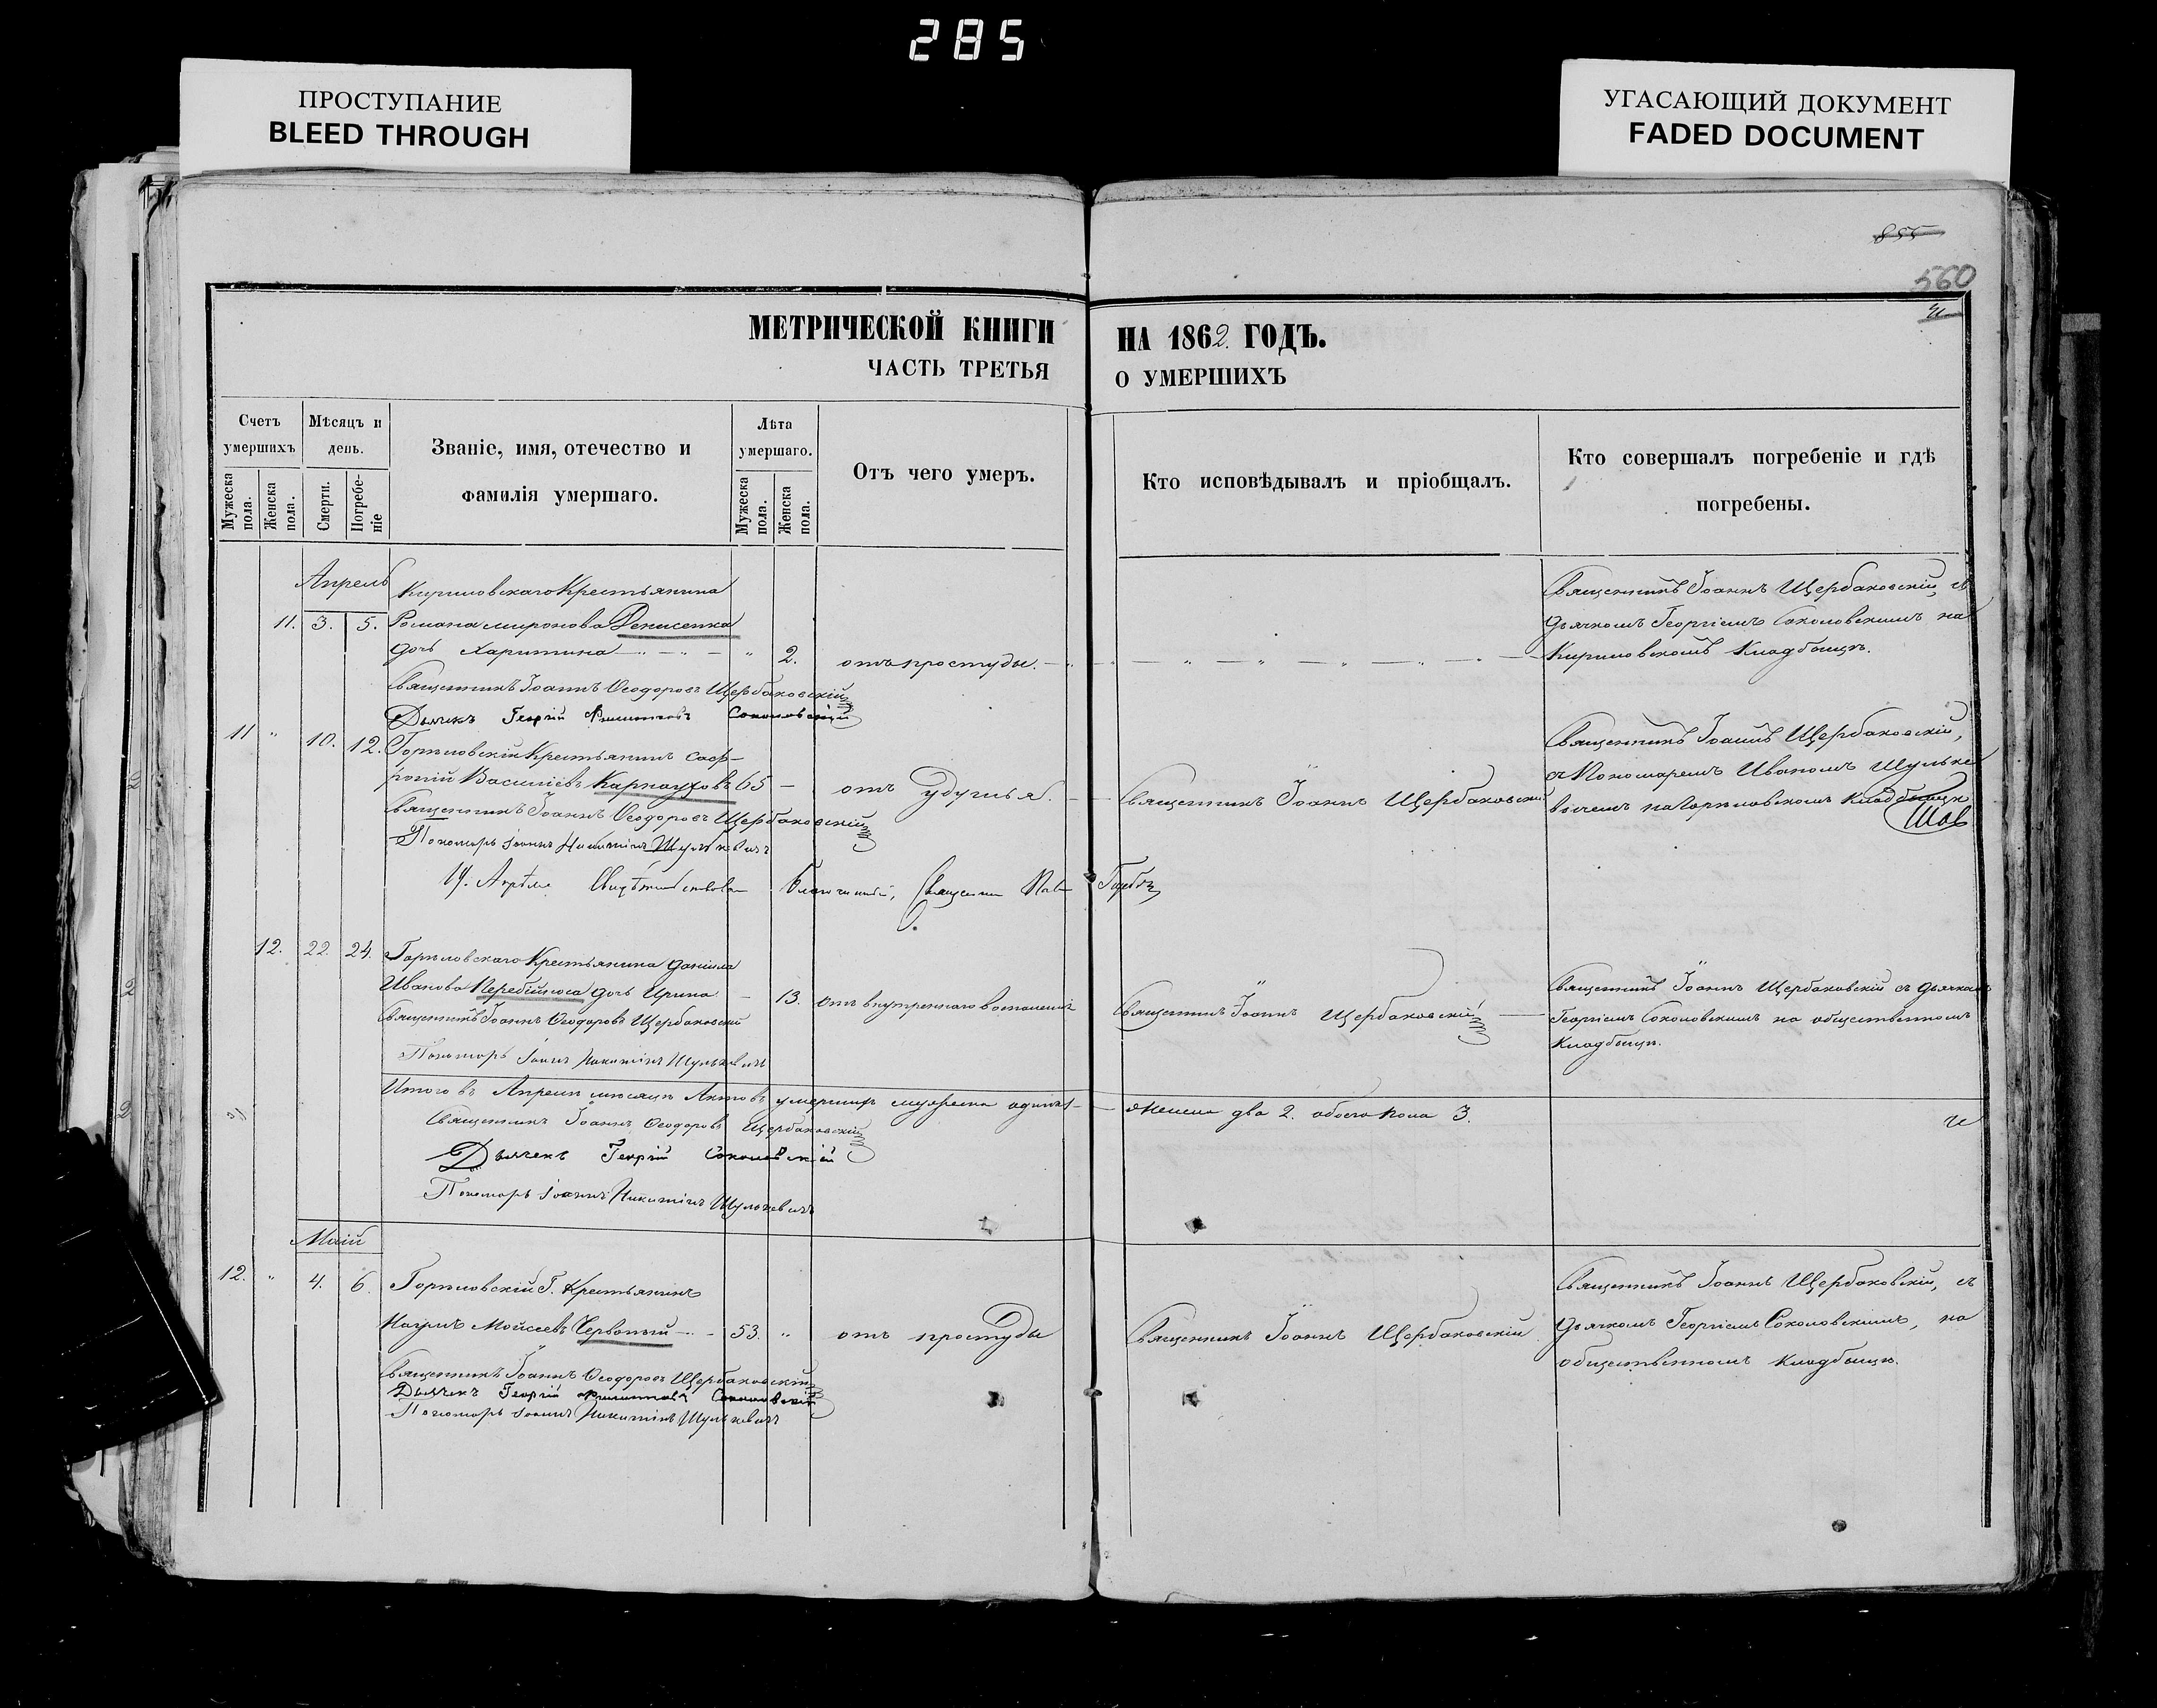 285
ПРОСТУПАНИЕ
BLEED THROUGH
УГАСАЮЩИЙ ДОКУМЕНТ
FADED DOCUMENT
855
560
МЕТРИЧЕСКОЙ КНИГИ НА 1862 ГОДЪ.
ЧАСТЬ ТРЕТЬЯ О УМЕРШИХЪ
Счетъ умершихъ
Мѣсяцъ и день.
Званіе, имя, отечество и фамилія умершаго.
Лѣта умершаго.
Отъ чего умеръ.
Кто исповѣдывалъ и пріобщалъ.
Кто совершалъ погребеніе и гдѣ погребены.
Мужеска пола.
Женска пола.
Смерти.
Погребеніе
Мужеска пола.
Женска пола.
Апрель
Кириловскаго Крестьянина
11. 3. 5. Романа Миронова Денисенка
дочь Харитина " 2. отъ простуды.
Священникъ Іоаннъ Щербаковскій, съ
дьячкомъ Георгіемъ Соколовскимъ на
Кириловскомъ Кладбищѣ.
Священникъ Іоаннъ Ѳеодоровъ Щербаковскій
Дьячекъ Георгій Соколовскій
11 " 10. 12. Горѣловскій Крестьянинъ Соф-
роній Василіевъ Карнауховъ 65 — отъ удушья.
Священникъ Іоаннъ Щербаковскій
Священникъ Іоаннъ Щербаковскій,
съ Пономаремъ Иваномъ Шульке-
вичемъ на Горѣловскомъ Кладбищѣ
Священникъ Іоаннъ Ѳеодоровъ Щербаковскій
Пономарь Іоаннъ Никитинъ Шулькевичъ
Апрѣля Благочинный, Священникъ
12. 22. 24. Горѣловскаго Крестьянина Даніила
Иванова Перебійноса дочь Ирина — 13. отъ внутренняго воспаленія
Священникъ Іоаннъ Щербаковскій
Священникъ Іоаннъ Щербаковскій съ дьячкомъ
Георгіемъ Соколовскимъ на общественномъ
Кладбищѣ.
Священникъ Іоаннъ Ѳеодоровъ Щербаковскій
Пономарь Іоаннъ Никитинъ Шулькевичъ
Итого въ Апрелѣ мѣсяцѣ Актовъ умершихъ мужеска одинъ 1 — женска два 2. обоего пола 3.
Священникъ Іоаннъ Ѳеодоровъ Щербаковскій
Дьячекъ Георгій Соколовскій
Пономарь Іоаннъ Никитинъ Шулькевичъ
Маій
12. " 4. 6. Горѣловскій Г. Крестьянинъ
Наумъ Мойсеевъ Червоный — 53. " отъ простуды
Священникъ Іоаннъ Щербаковскій
Священникъ Іоаннъ Щербаковскій, съ
дьячкомъ Георгіемъ Соколовскимъ, на
общественномъ кладбищѣ.
Священникъ Іоаннъ Ѳеодоровъ Щербаковскій
Дьячекъ Георгій Соколовскій
Пономарь Іоаннъ Никитинъ Шулькевичъ